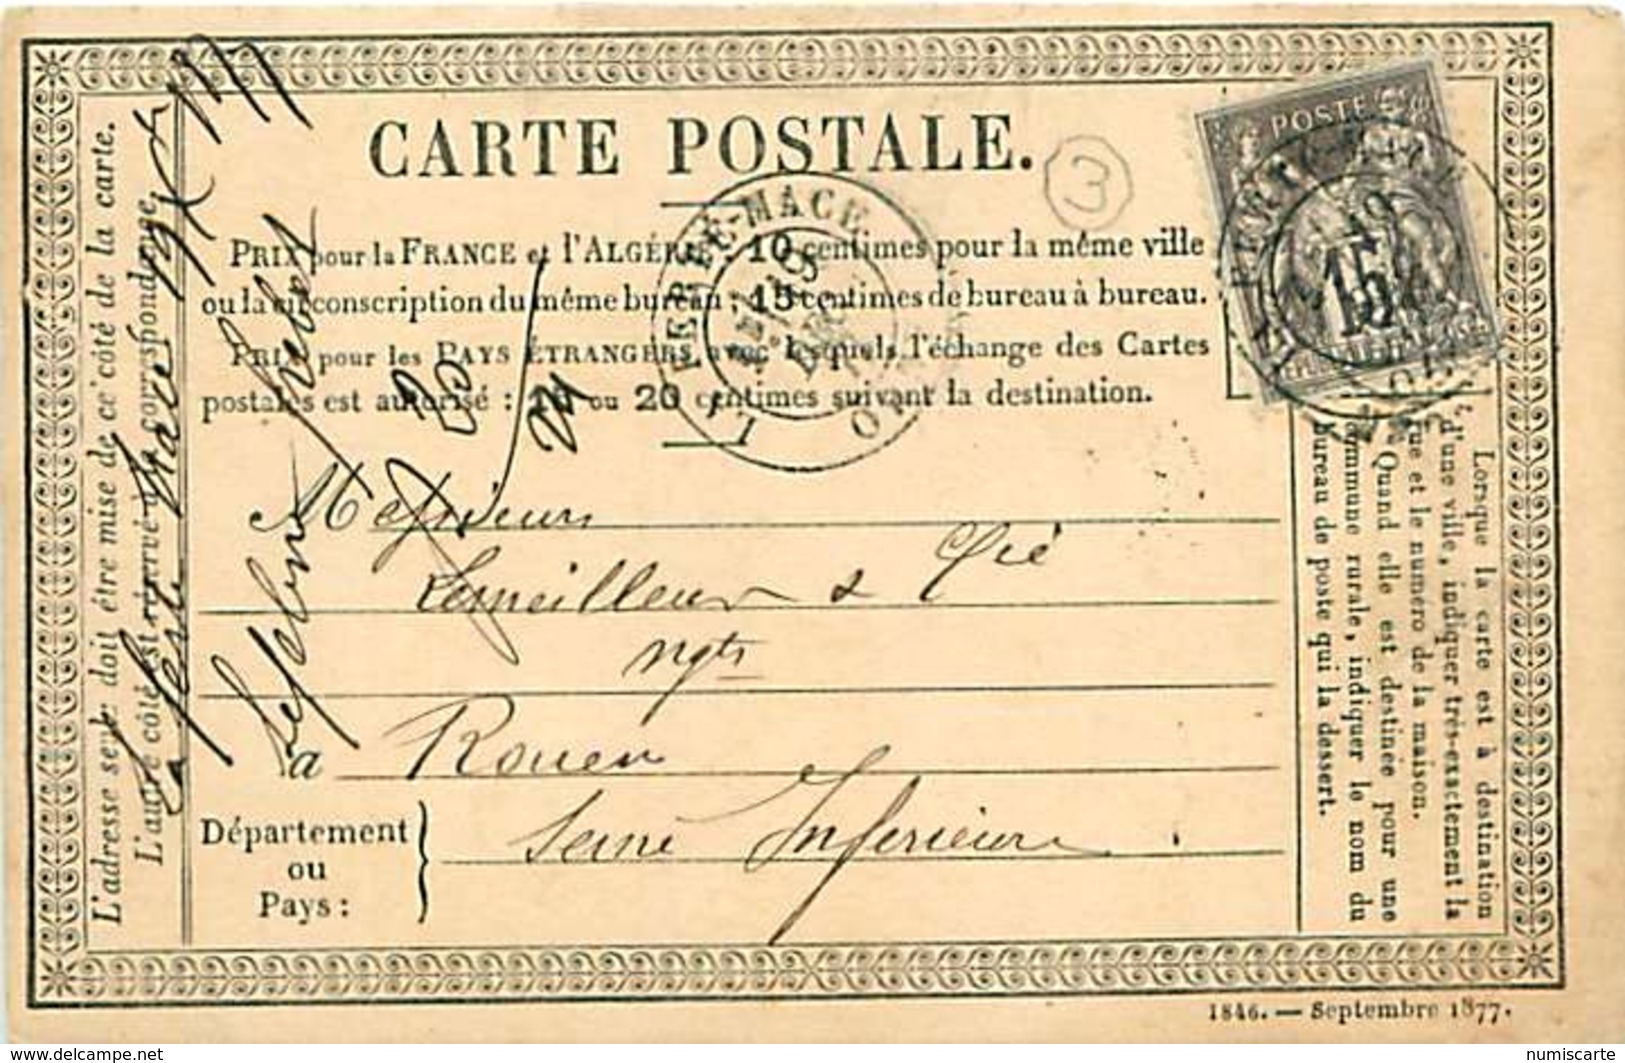 CARTE POSTALE.
3
POSTE
15
LE FERTÉ-MACÉ
ORNE
PRIX pour la FRANCE et l'ALGÉRIE : 10 centimes pour la même ville
ou la circonscription du même bureau ; 15 centimes de bureau à bureau.
PRIX pour les PAYS ÉTRANGERS avec lesquels l'échange des Cartes
postales est autorisé : 15 ou 20 centimes suivant la destination.
Messieurs
Lemeilleur & Cie
Ngts
à Rouen
Département
ou
Pays :
Seine Inférieure
L'adresse seule doit être mise de ce côté de la carte.
L'autre côté est réservé à la correspondance.
la Ferté Macé
Lefebvre
Lorsque la carte est à destination
d'une ville, indiquer très-exactement la
rue et le numéro de la maison.
Quand elle est destinée pour une
commune rurale, indiquer le nom du
bureau de poste qui la dessert.
1846. — Septembre 1877.
www.delcampe.net
numiscarte